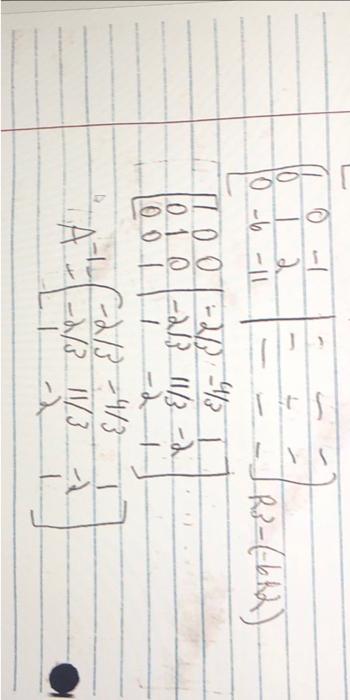 [
[ 1 0 -1 | - - -
0 1 2 | - - -
0 -6 -11 | - - - ] R3-(-6R2)
[ 1 0 0 | -2/3 -4/3 1
0 1 0 | -2/3 11/3 -2
0 0 1 | 1 -2 1 ]
∴ A⁻¹ = [ -2/3 -4/3 1
-2/3 11/3 -2
1 -2 1 ]